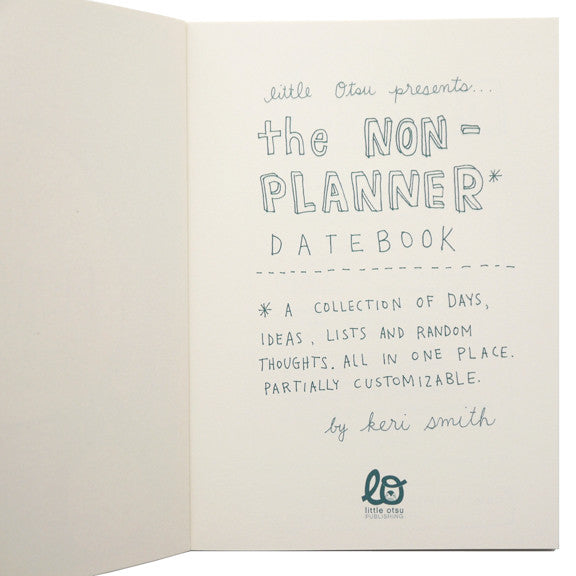 little Otsu presents...
the NON-
PLANNER*
DATEBOOK
* A COLLECTION OF DAYS,
IDEAS, LISTS AND RANDOM
THOUGHTS. ALL IN ONE PLACE.
PARTIALLY CUSTOMIZABLE.
by keri smith
lo
little otsu
PUBLISHING